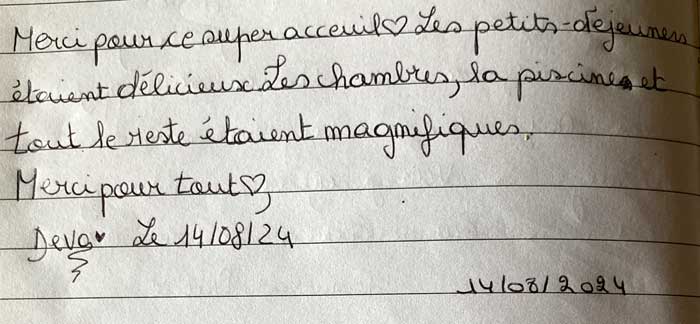 Merci pour ce super acceuil♡ Les petits-dejeuners
étaient délicieux Les chambres, la piscine et
tout le reste étaient magnifiques.
Merci pour tout♡,
Deva♥ Le 14/08/24
14/08/2024